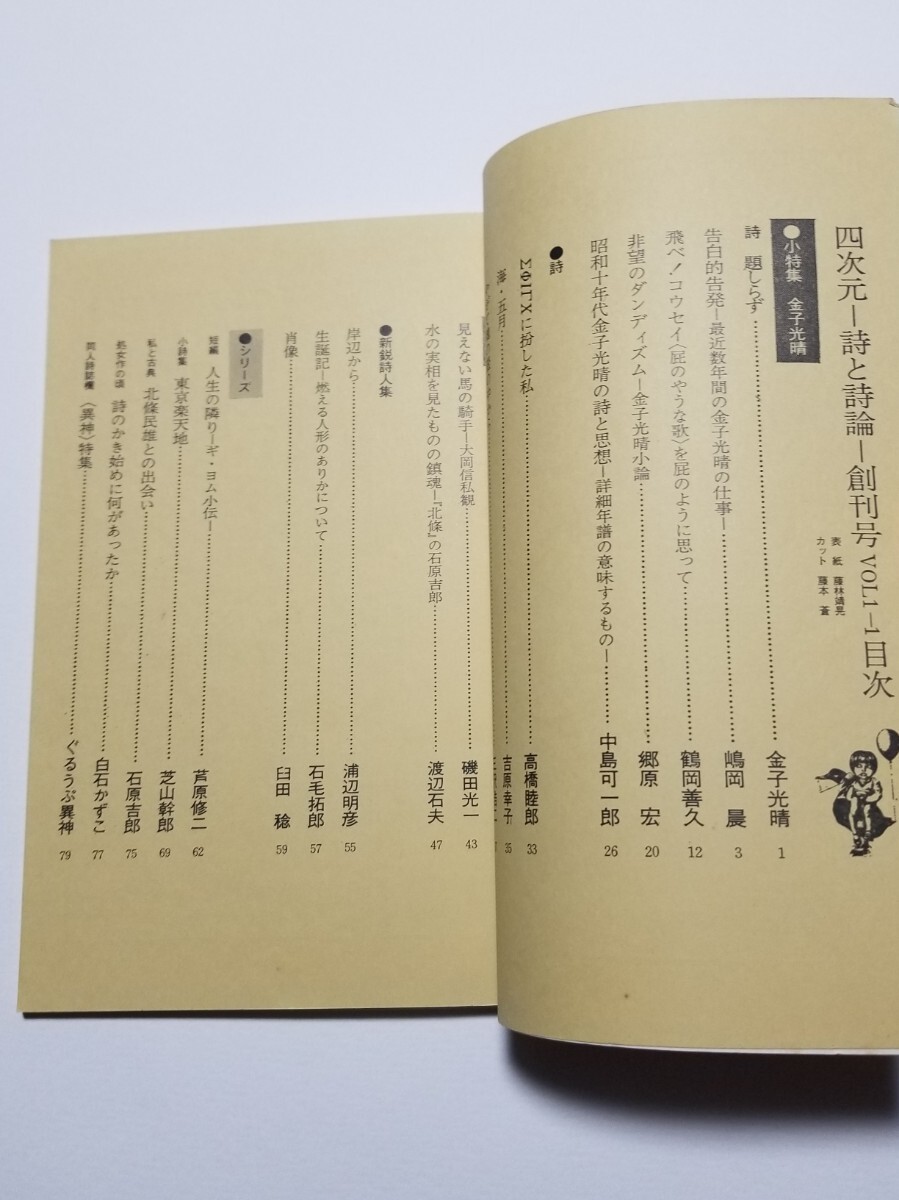 四次元―詩と詩論―創刊号VOL.1―1目次
表紙 藤林靖晃
カット 藤本蒼
●小特集 金子光晴
詩 題しらず…………金子光晴 1
告白的告発―最近数年間の金子光晴の仕事―…………嶋岡晨 3
飛べ！コウセイ〈屁のやうな歌〉を屁のように思って…………鶴岡善久 12
非望のダンディズム―金子光晴小論…………郷原宏 20
昭和十年代金子光晴の詩と思想―詳細年譜の意味するもの―…………中島可一郎 26
●詩
ΣΦΙΓΧに扮した私…………高橋睦郎 33
海・五月…………吉原幸子 35
見えない馬の騎手―大岡信私観…………磯田光一 43
水の実相を見たものの鎮魂―『北條』の石原吉郎…………渡辺石夫 47
●新鋭詩人集
岸辺から…………浦辺明彦 55
生誕記―燃える人形のありかについて…………石毛拓郎 57
肖像…………臼田稔 59
●シリーズ
短編 人生の隣り―ギ・ヨム小伝―…………芦原修二 62
小詩集 東京楽天地…………芝山幹郎 69
私と古典 北條民雄との出会い…………石原吉郎 75
処女作の頃 詩のかき始めに何があったか…………白石かずこ 77
同人詩誌欄 〈異神〉特集…………ぐるうぷ異神 79